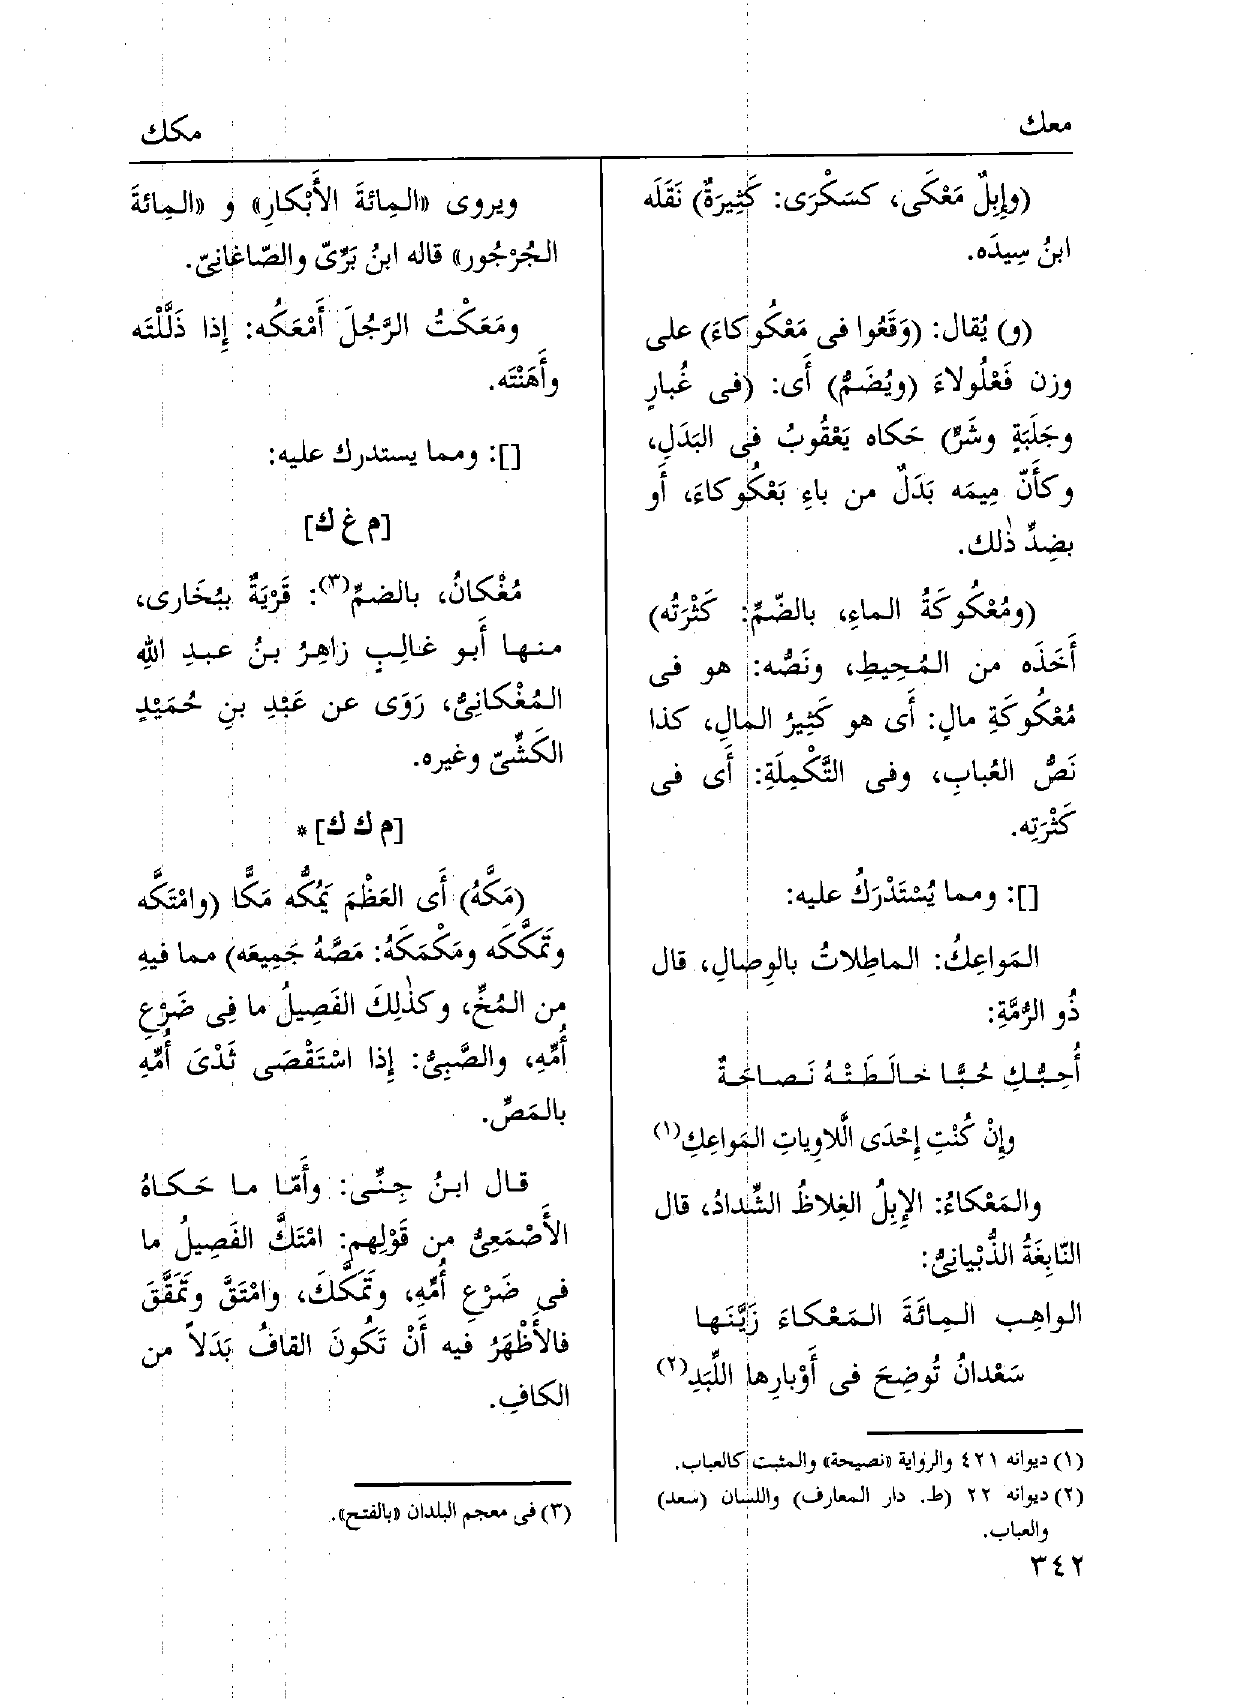 معك
مكك
(وإِبِلٌ مَعْكَى، كسَكْرَى: كَثِيرَةٌ) نَقَلَه
ابنُ سِيدَه.
(و) يُقال: (وَقَعُوا فى مَعْكُوكاءَ) على
وزن فَعْلُولاءَ (ويُضَمُّ) أَى: (فى غُبارٍ
وجَلَبَةٍ وشَرٍّ) حَكاه يَعْقُوبُ فى البَدَلِ،
وكأَنّ مِيمَه بَدَلٌ من باءِ بَعْكُوكاءَ، أَو
بضِدِّ ذٰلك.
(ومُعْكُوكَةُ الماءِ، بالضّمِّ: كَثْرَتُه)
أَخَذَه من المُحِيطِ، ونَصُّه: هو فى
مُعْكُوكَةِ مالٍ: أَى هو كَثِيرُ المالِ، كذا
نَصُّ العُبابِ، وفى التَّكْمِلَةِ: أَى فى
كَثْرَتِه.
[]: ومما يُسْتَدْرَكُ عليه:
المَواعِكُ: الماطِلاتُ بالوِصالِ، قال
ذُو الرُّمَّةِ:
أُحِبُّكِ حُبًّا خالَطَتْهُ نَصاحَةٌ
وإِنْ كُنْتِ إِحْدَى الَّلاوِياتِ المَواعِكِ(١)
والمَعْكاءُ: الإِبِلُ الغِلاظُ الشِّدادُ، قال
النّابِغَةُ الذُّبْيانِىُّ:
الواهِب المِائَةَ المَعْكاءَ زَيَّنَها
سَعْدانُ تُوضِحَ فى أَوْبارِها اللِّبَدِ(٢)
(١) ديوانه ٤٢١ والرواية «نصيحة» والمثبت كالعباب.
(٢) ديوانه ٢٢ (ط. دار المعارف) واللسان (سعد)
والعباب.
٣٤٢
ويروى «المِائةَ الأَبْكارِ» و «المِائةَ
الجُرْجُور» قاله ابنُ بَرِّىّ والصّاغانِىّ.
ومَعَكْتُ الرَّجُلَ أَمْعَكُه: إِذا ذَلَّلْتَه
وأَهَنْتَه.
[]: ومما يستدرك عليه:
[م غ ك]
مُغْكانُ، بالضمِّ(٣): قَرْيَةٌ ببُخَارى،
منها أَبو غالِبٍ زاهِرُ بنُ عبدِ اللهِ
المُغْكانِىُّ، رَوَى عن عَبْدِ بنِ حُمَيْدٍ
الكَشِّىّ وغيره.
[م ك ك] *
(مَكَّهُ) أَى العَظْمَ يَمُكُّه مَكًّا (وامْتَكَّه
وتَمَكَّكَه ومَكْمَكَهُ: مَصَّهُ جَمِيعَه) مما فيهِ
من المُخِّ، وكذٰلِكَ الفَصِيلُ ما فِى ضَرْعِ
أُمِّهِ، والصَّبِىُّ: إِذا اسْتَقْصَى ثَدْىَ أُمِّهِ
بالمَصِّ.
قال ابنُ جِنِّى: وأَمّا ما حَكاهُ
الأَصْمَعِىُّ من قَوْلِهِم: امْتَكَّ الفَصِيلُ ما
فى ضَرْعِ أُمِّهِ، وتَمَكَّكَ، وامْتَقَّ وتَمَقَّقَ
فالأَظْهَرُ فيه أَنْ تَكُونَ القافُ بَدَلاً من
الكافِ.
(٣) فى معجم البلدان «بالفتح».